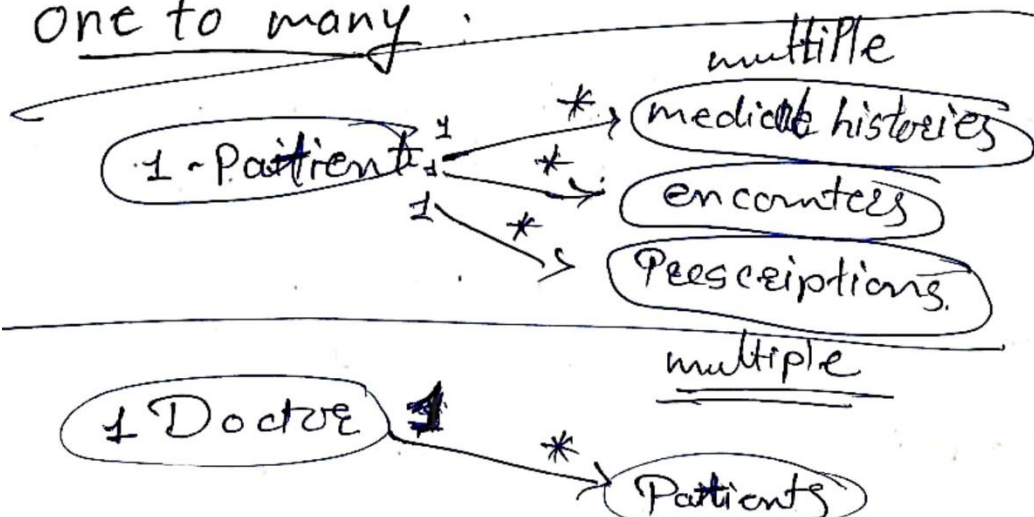 one to many :
multiple
1 - Paitient 1 * medical histories
* encounters
1 * Prescriptions.
multiple
1 Doctor 1
* Patients